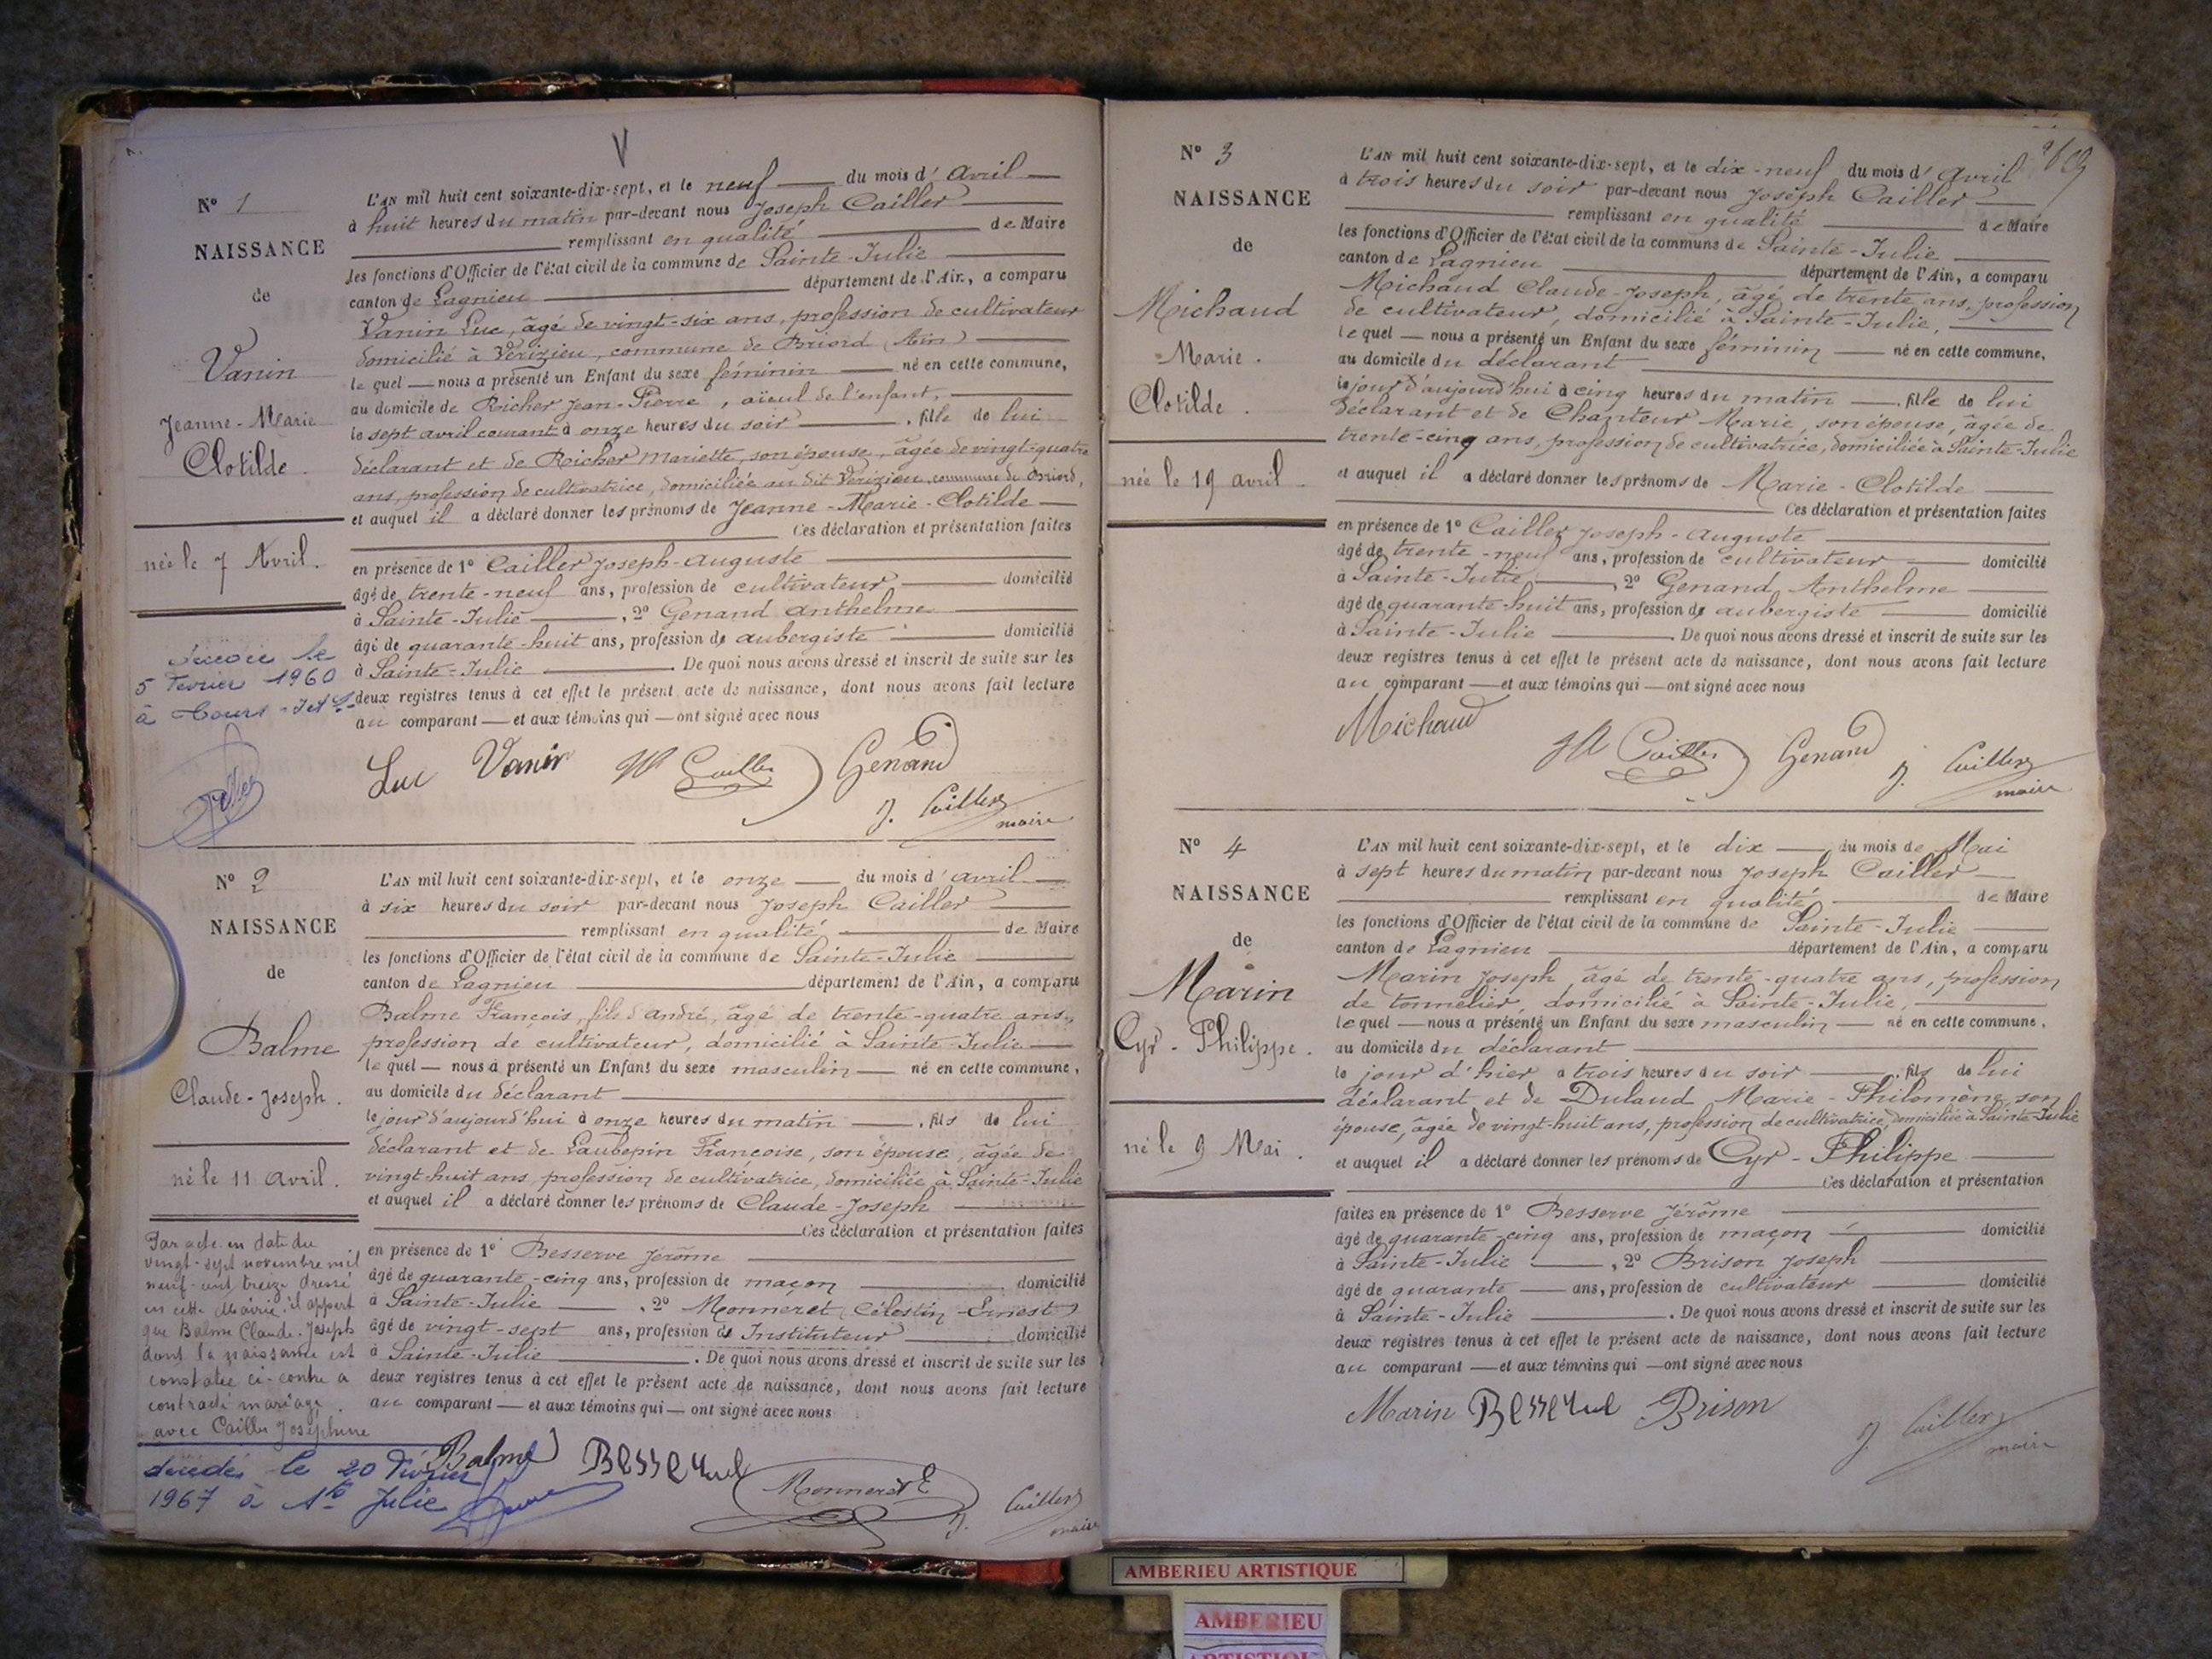 V
N° 1
NAISSANCE
de
Vanin
Jeanne-Marie
Clotilde.
née le 7 Avril.
décédée le
5 Février 1960
à
L'AN mil huit cent soixante-dix-sept, et le neuf du mois d'Avril
à huit heures du matin par-devant nous Joseph Cailler
remplissant en qualité de Maire
les fonctions d'Officier de l'état civil de la commune de Sainte-Julie
canton de Lagnieu département de l'Ain, a comparu
Vanin Luc, âgé de vingt-six ans, profession de cultivateur
domicilié à Vérizieu, commune de Briord (Ain)
le quel nous a présenté un Enfant du sexe féminin né en cette commune,
au domicile de Richer Jean-Pierre, aïeul de l'enfant,
le sept avril courant à onze heures du soir, fille de lui
déclarant et de Richer Mariette, son épouse, âgée de vingt-quatre
ans, profession de cultivatrice, domiciliée au dit Vérizieu, commune de Briord,
et auquel il a déclaré donner les prénoms de Jeanne-Marie-Clotilde
Ces déclaration et présentation faites
en présence de 1° Cailler Joseph-Auguste
âgé de trente-neuf ans, profession de cultivateur domicilié
à Sainte-Julie, 2° Genand Anthelme
âgé de quarante-huit ans, profession de aubergiste domicilié
à Sainte-Julie. De quoi nous avons dressé et inscrit de suite sur les
deux registres tenus à cet effet le présent acte de naissance, dont nous avons fait lecture
au comparant et aux témoins qui ont signé avec nous
Luc Vanin Cailler Genand
J. Cailler
maire
N° 2
NAISSANCE
de
Balme
Claude-Joseph.
né le 11 Avril.
Par acte en date du
vingt-sept novembre mil
neuf-cent treize dressé
en cette Mairie il appert
que Balme Claude-Joseph
dont la naissance est
constatée ci-contre a
contracté mariage
avec Cailler Joséphine
décédé le 20 Février
1967 à Ste Julie
L'AN mil huit cent soixante-dix-sept, et le onze du mois d'avril
à six heures du soir par-devant nous Joseph Cailler
remplissant en qualité de Maire
les fonctions d'Officier de l'état civil de la commune de Sainte-Julie
canton de Lagnieu département de l'Ain, a comparu
Balme François, fils d'André, âgé de trente-quatre ans,
profession de cultivateur, domicilié à Sainte-Julie
le quel nous a présenté un Enfant du sexe masculin né en cette commune,
au domicile du déclarant
le jour d'aujourd'hui à onze heures du matin, fils de lui
déclarant et de Laubepin Françoise, son épouse, âgée de
vingt-huit ans, profession de cultivatrice, domiciliée à Sainte-Julie
et auquel il a déclaré donner les prénoms de Claude-Joseph
Ces déclaration et présentation faites
en présence de 1° Besserve Jérôme
âgé de quarante-cinq ans, profession de maçon domicilié
à Sainte-Julie, 2° Monneret (Célestin-Ernest)
âgé de vingt-sept ans, profession de Instituteur domicilié
à Sainte-Julie. De quoi nous avons dressé et inscrit de suite sur les
deux registres tenus à cet effet le présent acte de naissance, dont nous avons fait lecture
au comparant et aux témoins qui ont signé avec nous
Balme Monneret E
J. Cailler
maire
N° 3
NAISSANCE
de
Michaud
Marie.
Clotilde.
née le 19 avril.
L'AN mil huit cent soixante-dix-sept, et le dix-neuf du mois d'Avril
à trois heures du soir par-devant nous Joseph Cailler
remplissant en qualité de Maire
les fonctions d'Officier de l'état civil de la commune de Sainte-Julie
canton de Lagnieu département de l'Ain, a comparu
Michaud Claude-Joseph, âgé de trente ans, profession
de cultivateur, domicilié à Sainte-Julie,
le quel nous a présenté un Enfant du sexe féminin né en cette commune,
au domicile du déclarant
le jour d'aujourd'hui à cinq heures du matin, fille de lui
déclarant et de Chanteur Marie, son épouse, âgée de
trente-cinq ans, profession de cultivatrice, domiciliée à Sainte-Julie
et auquel il a déclaré donner les prénoms de Marie-Clotilde
Ces déclaration et présentation faites
en présence de 1° Cailler Joseph-Auguste
âgé de trente-neuf ans, profession de cultivateur domicilié
à Sainte-Julie, 2° Genand Anthelme
âgé de quarante-huit ans, profession de aubergiste domicilié
à Sainte-Julie. De quoi nous avons dressé et inscrit de suite sur les
deux registres tenus à cet effet le présent acte de naissance, dont nous avons fait lecture
au comparant et aux témoins qui ont signé avec nous
Michaud
JA Cailler Genand J. Cailler
maire
N° 4
NAISSANCE
de
Marin
Cyr-Philippe.
né le 9 Mai.
L'AN mil huit cent soixante-dix-sept, et le dix du mois de Mai
à sept heures du matin par-devant nous Joseph Cailler
remplissant en qualité de Maire
les fonctions d'Officier de l'état civil de la commune de Sainte-Julie
canton de Lagnieu département de l'Ain, a comparu
Marin Joseph, âgé de trente-quatre ans, profession
de tonnelier, domicilié à Sainte-Julie,
le quel nous a présenté un Enfant du sexe masculin né en cette commune,
au domicile du déclarant
le jour d'hier à trois heures du soir, fils de lui
déclarant et de Dulaud Marie-Philomène, son
épouse, âgée de vingt-huit ans, profession de cultivatrice, domiciliée à Sainte-Julie
et auquel il a déclaré donner les prénoms de Cyr-Philippe
Ces déclaration et présentation
faites en présence de 1° Besserve Jérôme
âgé de quarante-cinq ans, profession de maçon domicilié
à Sainte-Julie, 2° Brison Joseph
âgé de quarante ans, profession de cultivateur domicilié
à Sainte-Julie. De quoi nous avons dressé et inscrit de suite sur les
deux registres tenus à cet effet le présent acte de naissance, dont nous avons fait lecture
au comparant et aux témoins qui ont signé avec nous
Marin Brison
J. Cailler
maire
AMBERIEU ARTISTIQUE
AMBERIEU
ARTISTIQUE